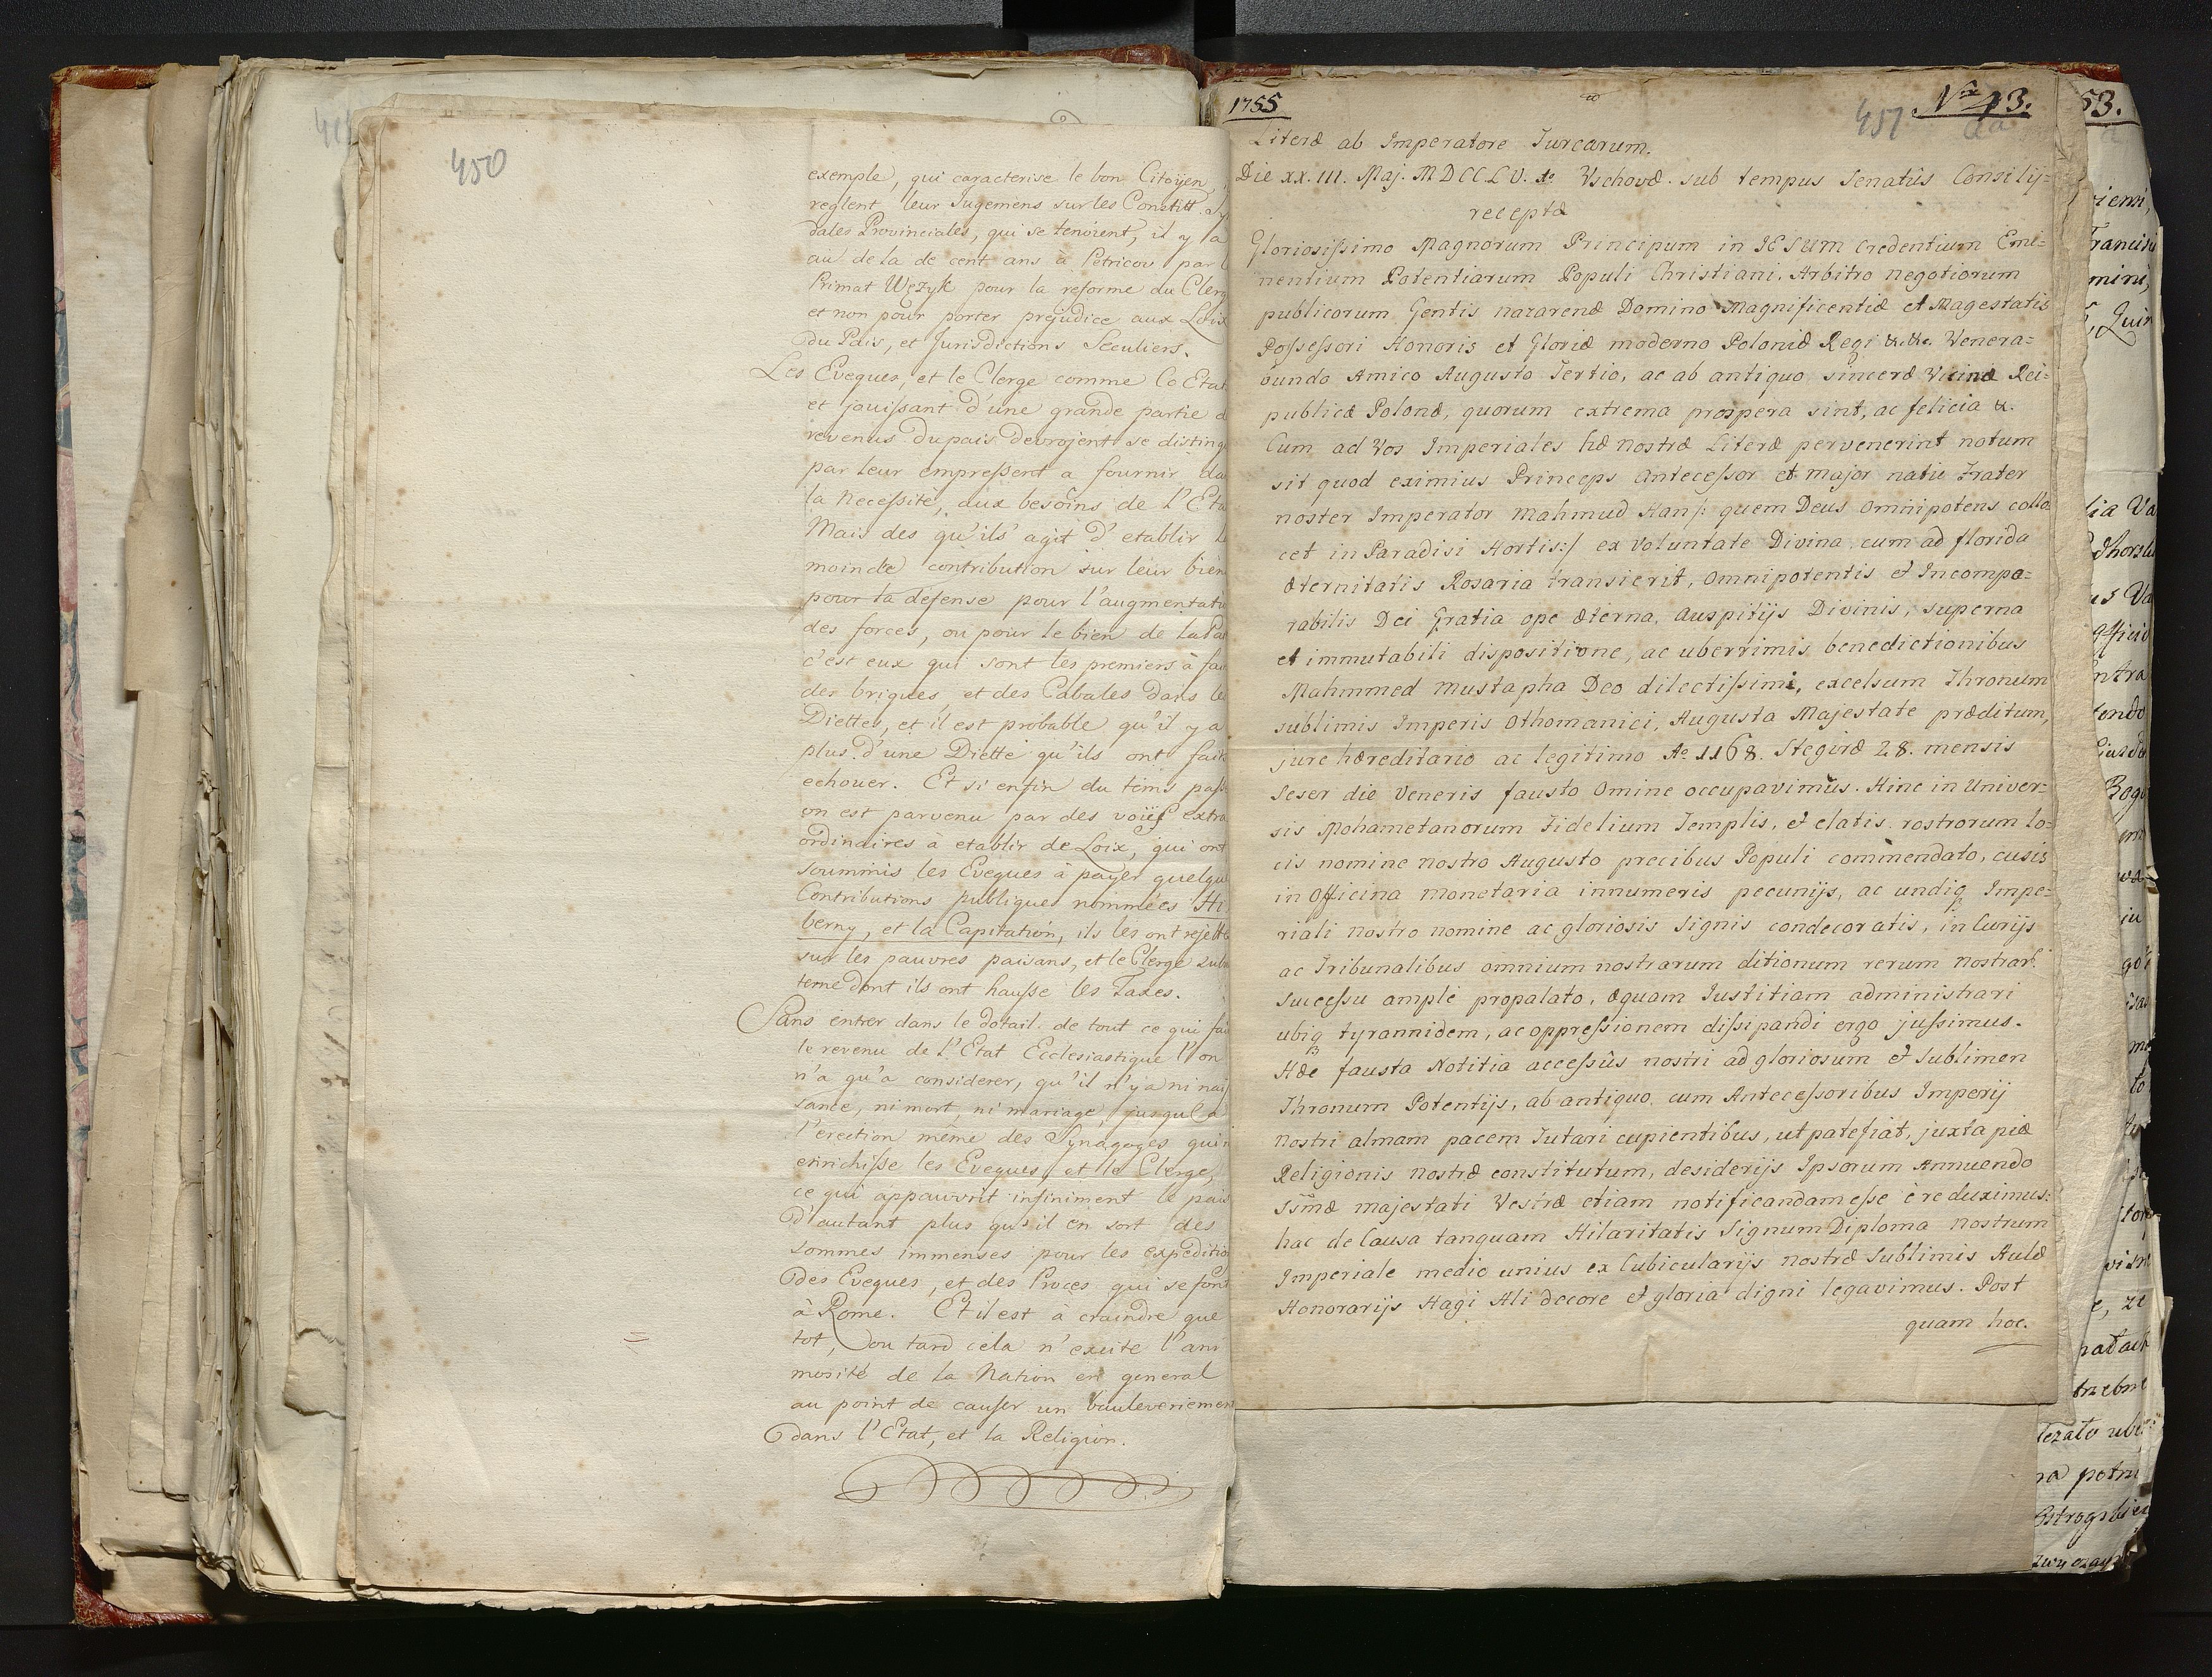 450
exemple, qui caracterise le bon Citoÿen,
reglent leur Jugemens sur les Constitt. Sy
dales Provinciales, qui se tenoient, il y a
au de la de cent ans à Petricou par l
Primat Węzyk pour la reforme du Clerg
et non pour porter prejudice aux Loix
du Païs, et Jurisdictions Seculiers.
Les Eveques, et le Clerge comme Co Etat
et jouissant d'une grande partie d
revenus du pais devrojent se disting
par leur empressent a fournir da
la Necessité, aux besoins de l'Eta
Mais des qu'ils' agit d'etablir l
moindre contribution sur leur bien
pour ta defense pour l'augmentati
des forces, ou pour le bien de la Pat
c'est eux qui sont les premiers à fai
des brigues, et des Cabales dans le
Diettes, et il est probable qu'il y a
plus d'une Diette qu'ils ont fait
echouer. Et si enfin du tems pass
on est parvenu par des voïes extra
ordinaires à etablir de Loix, qui ont
soummis les Eveques à payer quelqu
Contributions publiques nommées Hi
berny, et la Capitation, ils les ont rejette
sur les pauvres païsans, et le Clerge sub
terne dont ils ont hausse les Taxes.
Sans entrer dans le dotail de tout ce qui fai
le revenu de l'Etat Ecclesiastique l'on
n'a qu'a considerer, qu'il n'y a ni nais
sance, ni mort, ni mariage, jusqu'a
l'erection même des Synagoges qui n
enrichisse les Eveques, et le Clerge,
ce qui appauvrit infiniment le pais
d'autant plus qu'il en sort des
sommes immenses pour les expeditio
des Eveques, et des Proces qui se font
à Rome. Et il est à craindre que
tot, ou tard cela n'exite l'ani
mosité de la Nation en general
au point de causer un bauleveriemen
dans l'Etat, et la Religion.
1755
451 Nro 43.
Literæ ab Imperatore Turcarum.
Die XX.III. Maj. MDCCLV. Vschovæ sub tempus Senatûs Consilij=
receptæ
Gloriosissimo Magnorum Principum in IESUM Credentium Emi=
nentium Potentiarum Populi Christiani. Arbitro negotiorum
publicorum Gentis nazarenæ Domino Magnificentiæ et Magestatis
Possessori Honoris et Gloriæ moderno Poloniæ Regi &c. &c. Venera=
bundo Amico Augusto Tertio, ac ab antiquo sinceræ Vicinæ Rei=
publicæ Polonæ, quorum extrema prospera sint, ac felicia &.
Cum ad Vos Imperiales hæ nostræ Literæ pervenerint notum
sit quod eximius Princeps Antecessor et major natu Frater
noster Imperator Mahmud Han/: quem Deus Omnipotens collo
cet in Paradisi Hortis:/ ex Voluntate Divina cum ad florida
æternitatis Rosaria transierit, Omnipotentis et Incompa=
rabilis Dei Gratia ope æterna, Auspitijs Divinis, superna
et immutabili dispositione, ac uberrimis benedictionibus
Mahmmed Mustapha Deo dilectissimi, excelsum Thronum
sublimis Imperis Othomanici, Augusta Majestate præditum,
jure hæreditario ac legitimo Ao 1168. Hegiræ 28. mensis
Seser die Veneris fausto Omine occupavimus. Hinc in Univer=
sis Mohametanorum Fidelium Templis, et elatis rostrorum lo=
cis nomine nostro Augusto precibus Populi commendato, cusis
in Officina monetaria innumeris pecunijs, ac undiq Impe=
riali nostro nomine ac gloriosis Signis condecoratis, in Curijs
ac Tribunalibus omnium nostrarum ditionum rerum nostrar:
Successu amplè propalato, æquam Iustitiam administrari
ubiq tyrannidem, ac oppressionem dissipandi ergo jussimus.
Hæc fausta Notitia accessûs nostri ad gloriosum et sublimen
Thronum Potentijs, ab antiquo cum Antecessoribus Imperij
Nostri almam pacem Tutari cupientibus, ut patefiat, juxta piæ
Religionis nostræ constitutum, desiderijs Ipsorum Annuendo
Ssmæ majestati Vestræ etiam notificandam esse è re duximus:
hac de Causa tanquam Hilaritatis Signum Diploma nostrum
Imperiale medio unius ex Cubicularijs nostræ Sublimis Aulæ
Honorarijs Hagi Ali decore et gloria digni legavimus. Post
quam hoc.
53.